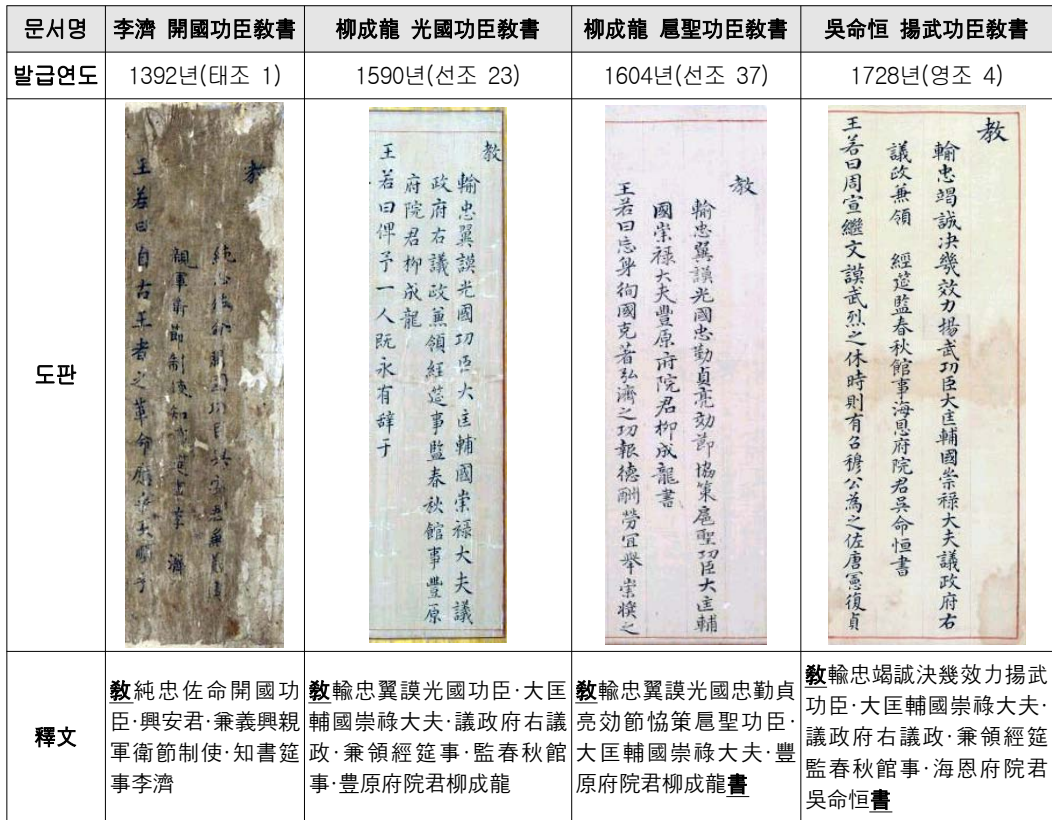 문서명
李濟 開國功臣敎書
柳成龍 光國功臣敎書
柳成龍 扈聖功臣敎書
吳命恒 揚武功臣敎書
발급연도
1392년(태조 1)
1590년(선조 23)
1604년(선조 37)
1728년(영조 4)
도판
教
親軍衛節制使知書筵事李 濟
王若曰自古王者之革命
教
輸忠翼謨光國功臣大匡輔國崇禄大夫議
政府右議政兼領經筵事監春秋館事豊原
府院君柳成龍
王若曰俾予一人既永有辞于
教
輸忠翼謨光國忠勤貞亮効節協策扈聖功臣大匡輔
國崇禄大夫豊原府院君柳成龍書
王若曰忘身徇國克著弘濟之功報德酬勞宜擧崇奬之
教
輸忠竭誠决幾效力揚武功臣大匡輔國崇禄大夫議政府右
議政兼領 經筵監春秋館事海恩府院君吳命恒書
王若曰周宣繼文謨武烈之休時則有召穆公為之佐唐憲復貞
釋文
敎純忠佐命開國功
臣·興安君·兼義興親
軍衛節制使·知書筵
事李濟
敎輸忠翼謨光國功臣·大匡
輔國崇祿大夫·議政府右議
政·兼領經筵事·監春秋館
事·豊原府院君柳成龍
敎輸忠翼謨光國忠勤貞
亮効節恊策扈聖功臣·
大匡輔國崇祿大夫·豐
原府院君柳成龍書
敎輸忠竭誠決幾效力揚武
功臣·大匡輔國崇祿大夫·
議政府右議政·兼領經筵
監春秋館事·海恩府院君
吳命恒書